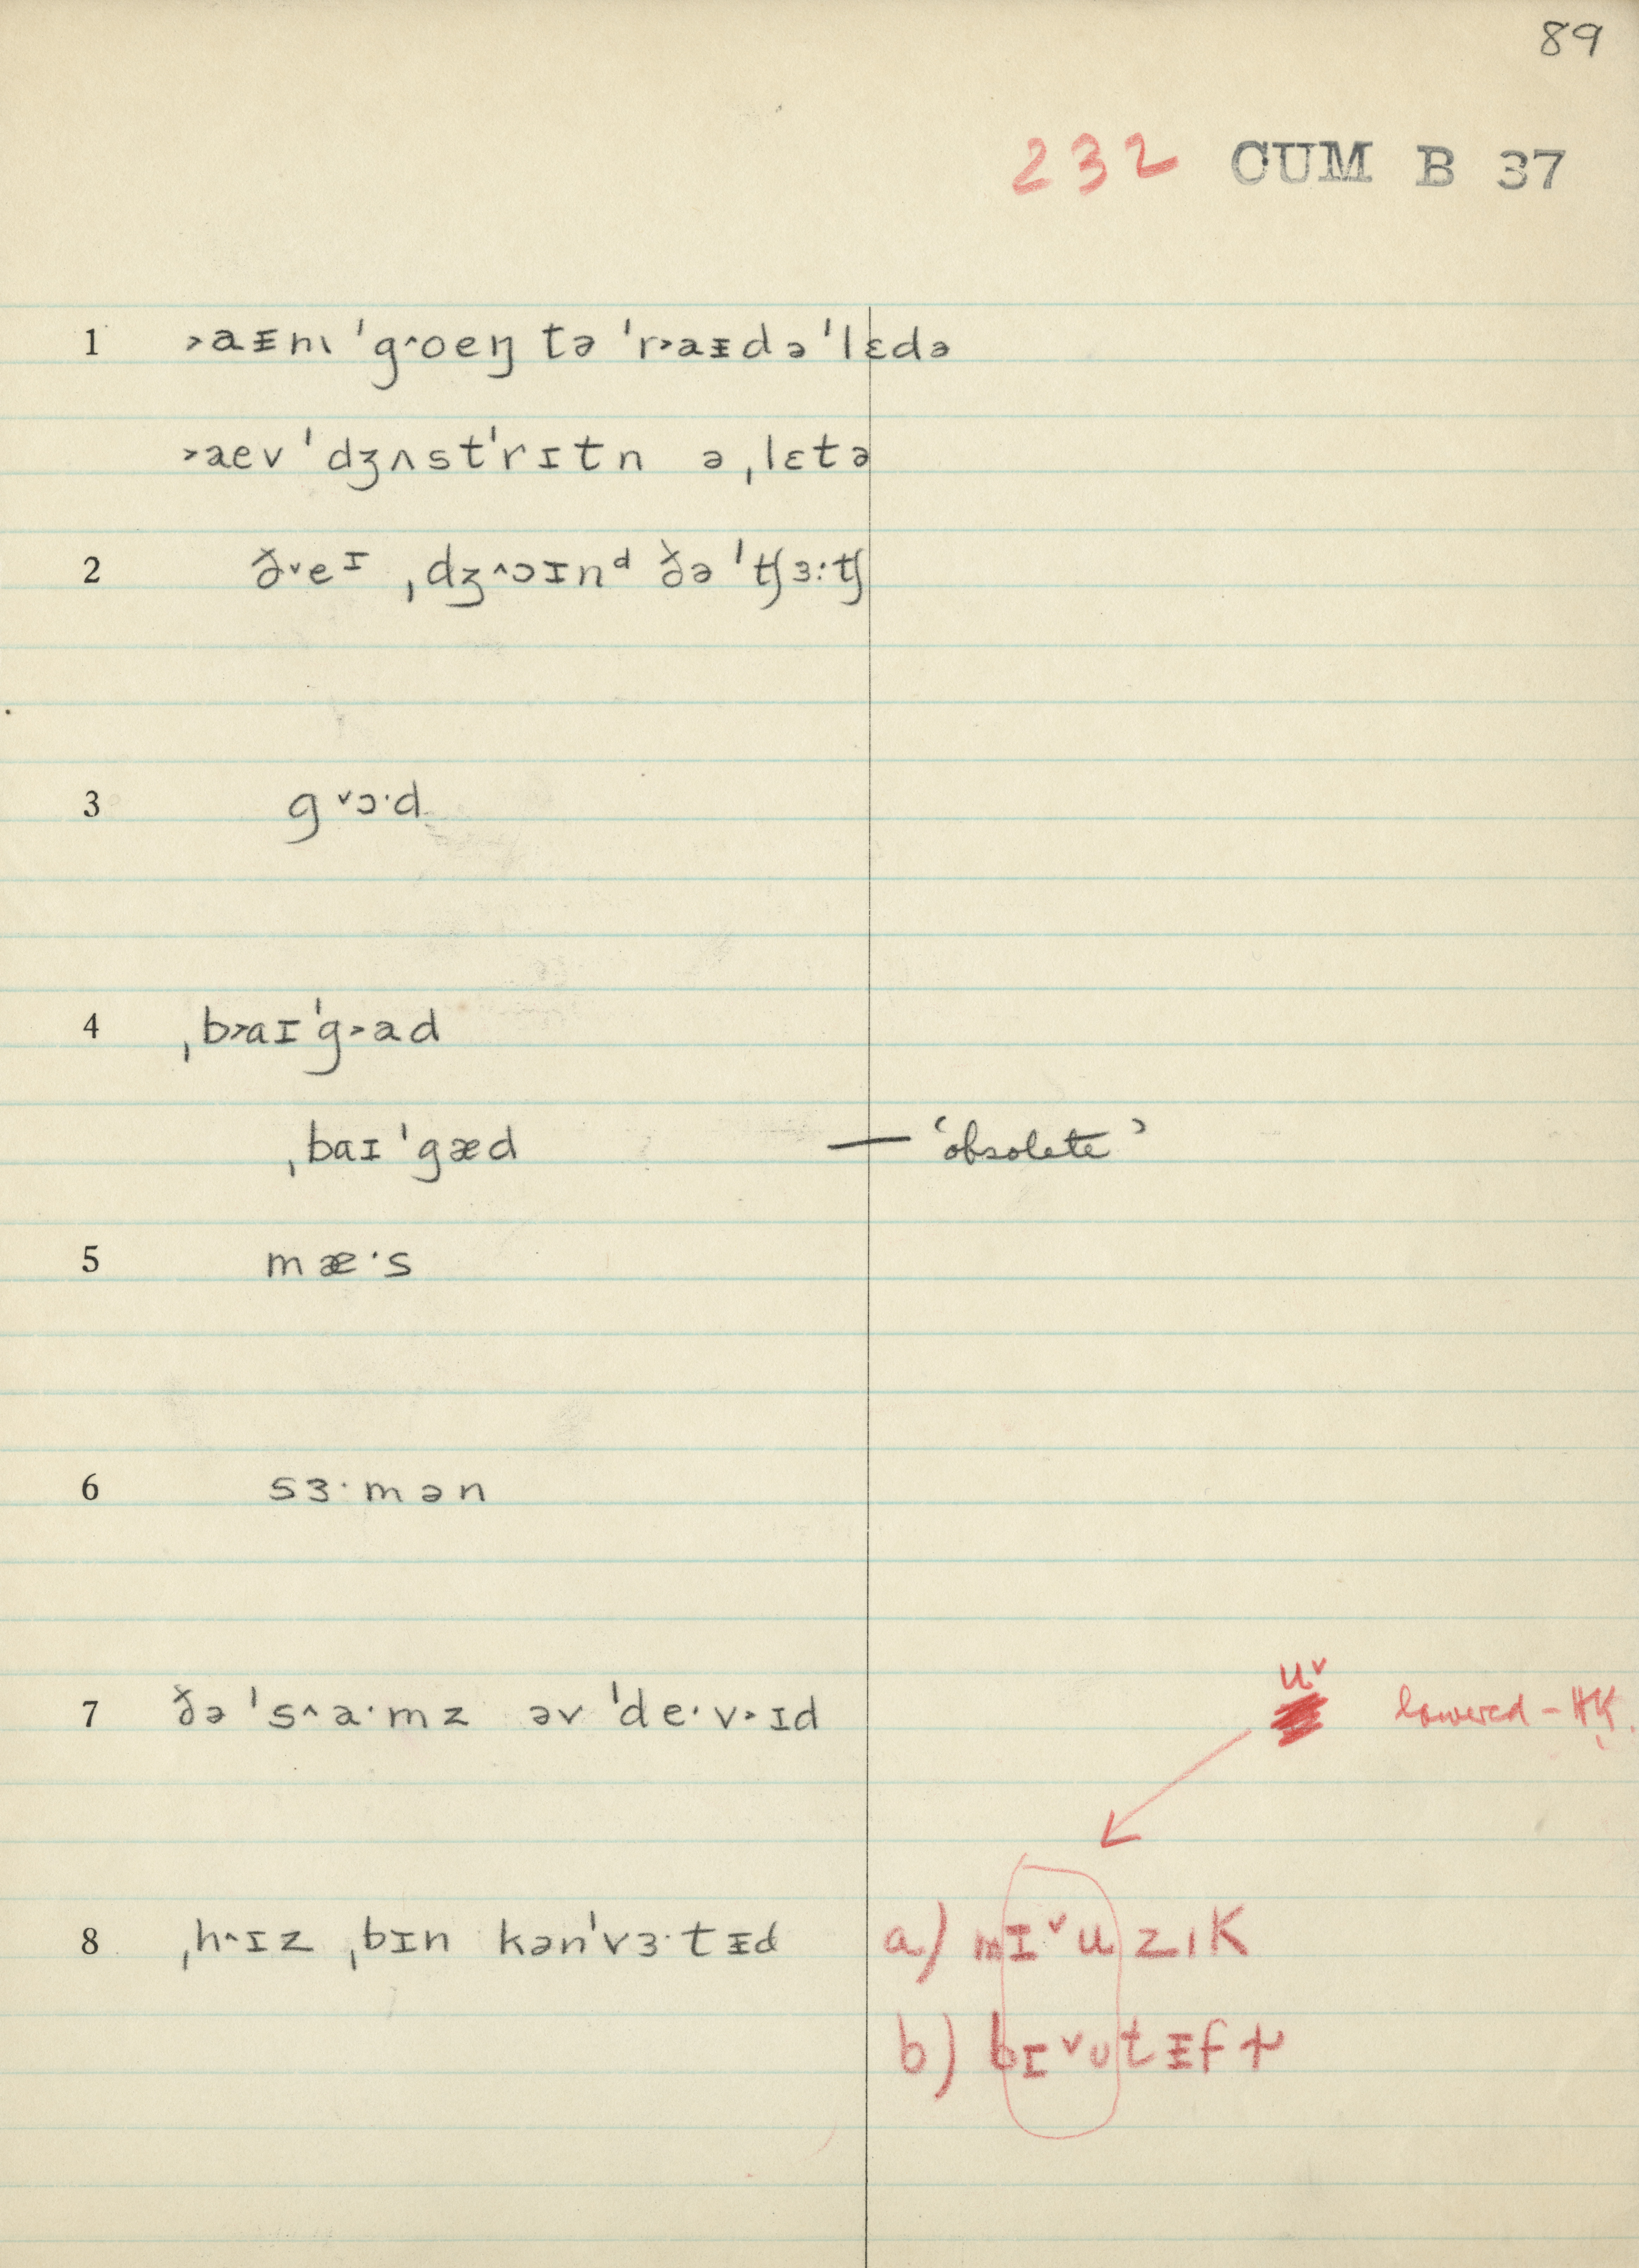 89
232 CUM B 37
1 ˃aᵻm ˈg˄oeŋ tə ˈr˃aᵻdəˈlɛdə
˃aev ˈdʒʌstˈrɪtn ə ˌlɛtə
2 ð˅eᴵ ˌdʒ˄ɔɪnᵈ ðə ˈʧɜːʧ
3 g˅ɔ·d
4 ˌb˃aɪˈg˃ad
ˌbaɪˈgæd — ‘obsolete’
5 mæ·s
6 sɜ·mən
7 ðə ˈs˄a·mz əv ˈde·v˃ɪd u˅ lowered – HK.
8 ˌh˄ɪz ˌbɪn kənˈvɜ·tᵻd a) mɪ˅uzıK
b) bɪ˅ʊtᵻfɫ